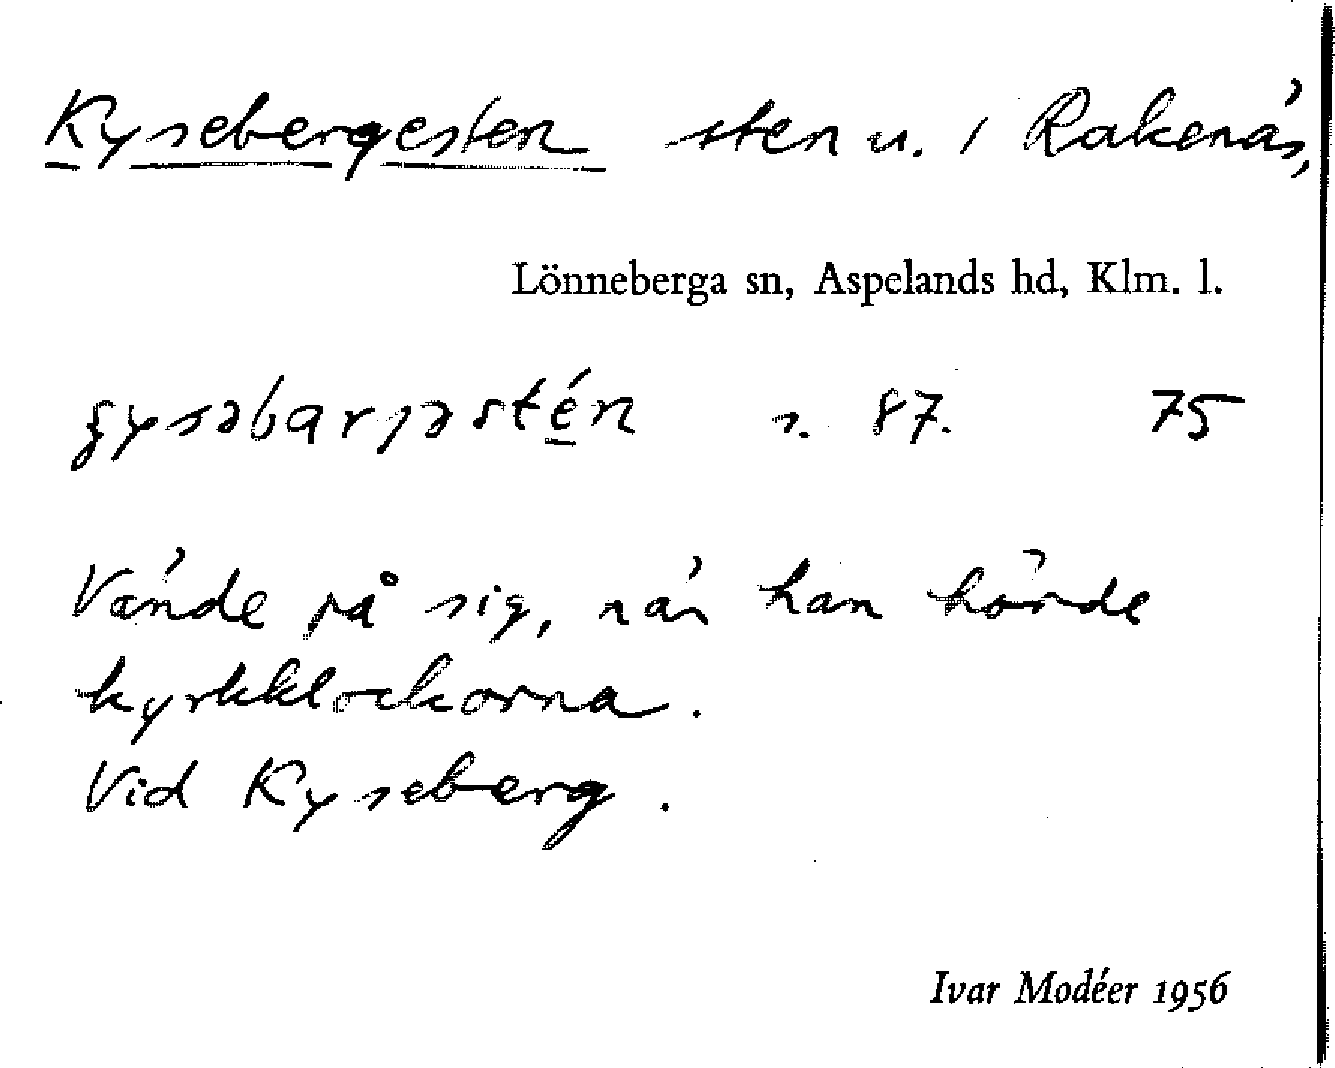 Kysebergesten sten u. / Rakenäs,
Lönneberga sn, Aspelands hd, Klm. l.
s. 87. 75
Vände på sig, när han hörde
kyrkklockorna.
Vid Kyseberg.
Ivar Modéer 1956